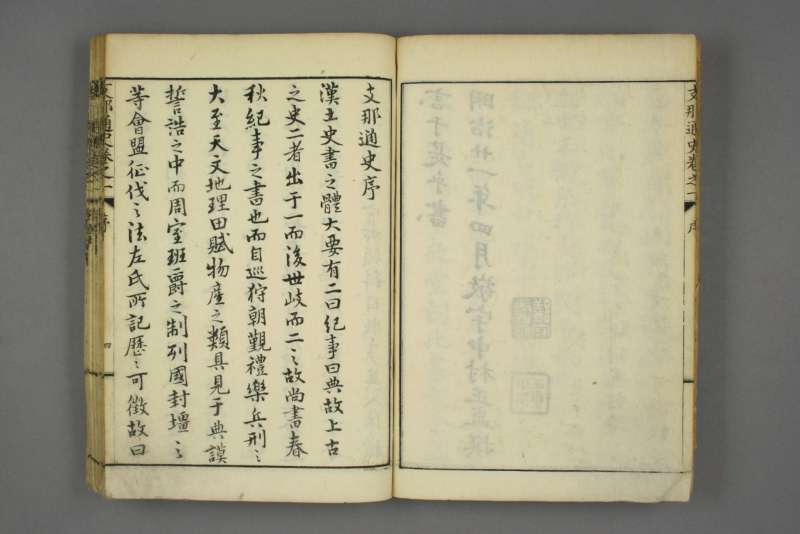 支那通史卷之一
序
支那通史序
漢土史書之體大要有二曰紀事曰典故上古
之史二者出于一而後世岐而二之故尚書春
秋紀事之書也而自巡狩朝覲禮樂兵刑之
大至天文地理田賦物產之類具見于典謨
誓誥之中而周室班爵之制列國封壃之
等會盟征伐之法左氏所記歷〻可徵故曰
支那通史卷之一
序
四